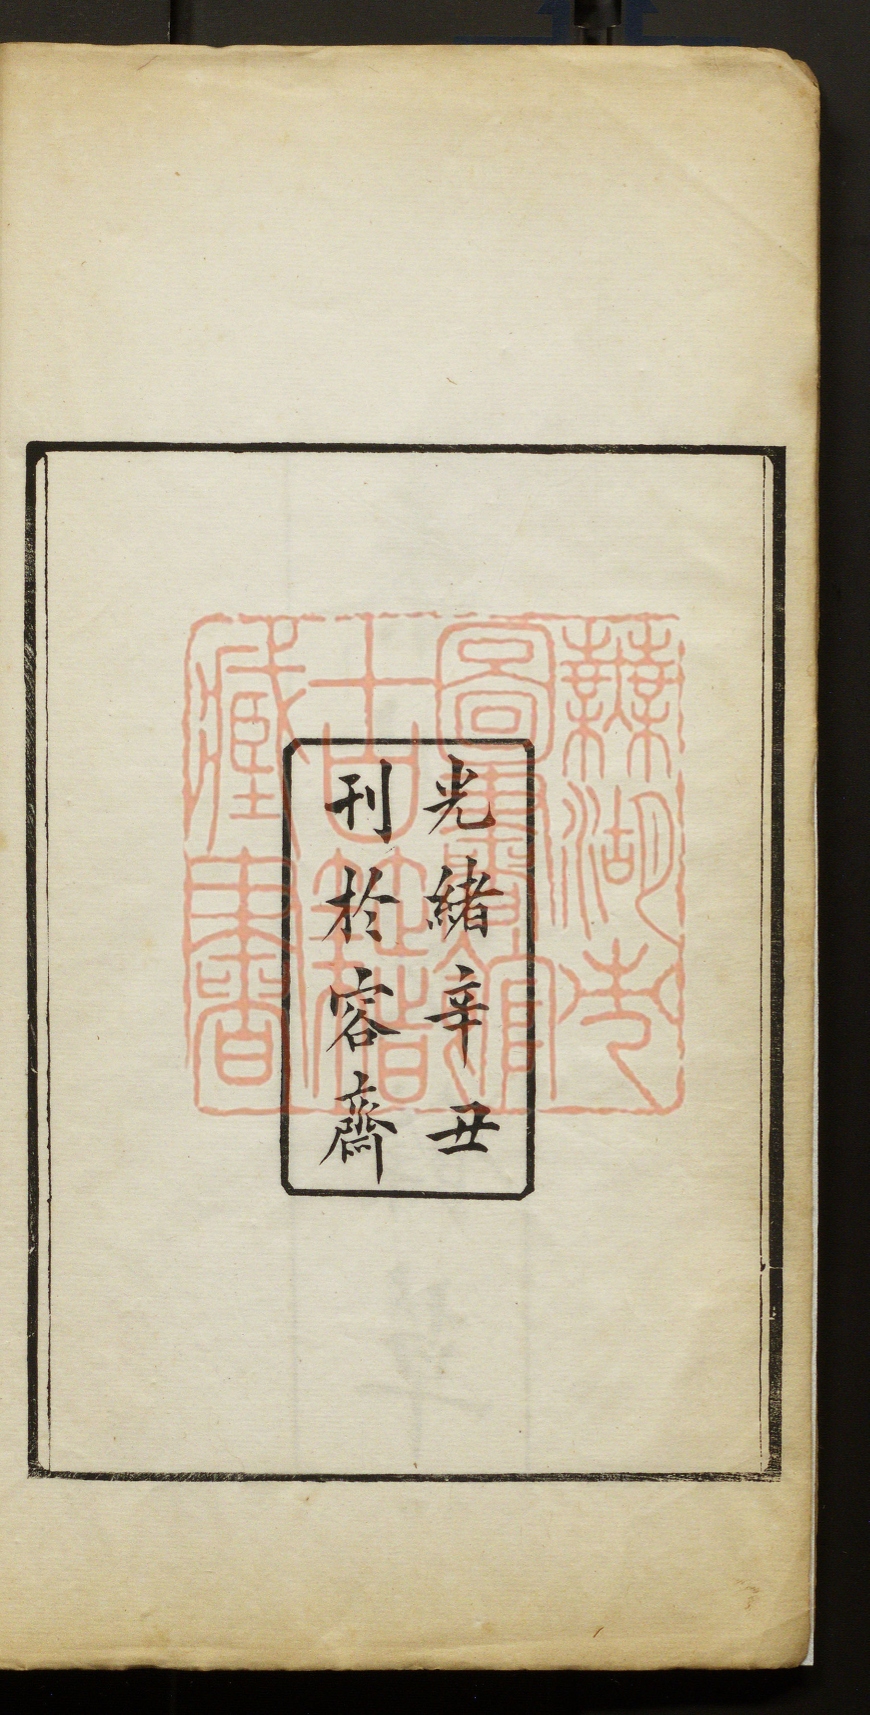 光緒辛丑
刊於容齋
蕪湖市
圖書館
古籍
藏書